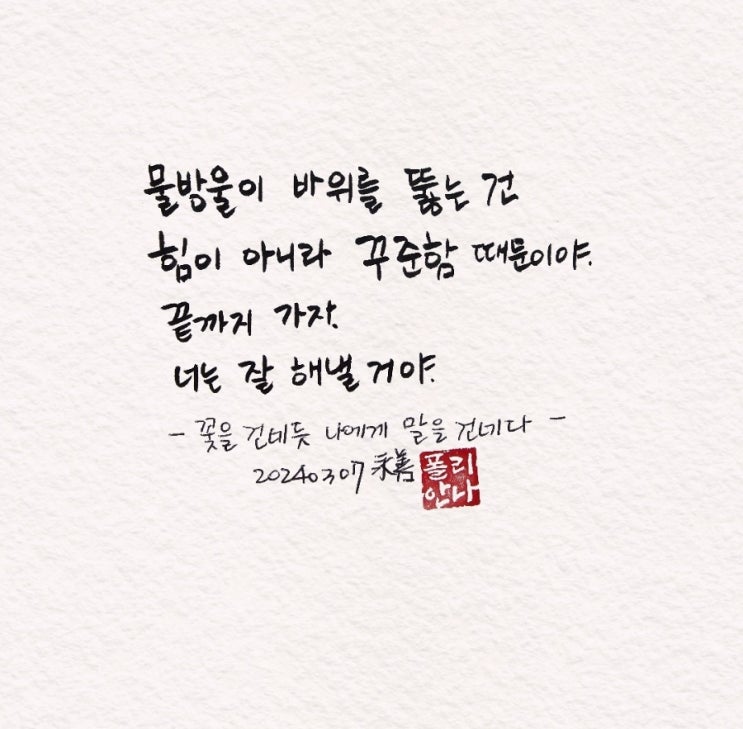 물방울이 바위를 뚫는 건
힘이 아니라 꾸준함 때문이야.
끝까지 가자.
너는 잘 해낼 거야.
- 꽃을 건네듯 나에게 말을 건네다 -
20240307 禾善 폴리
안나